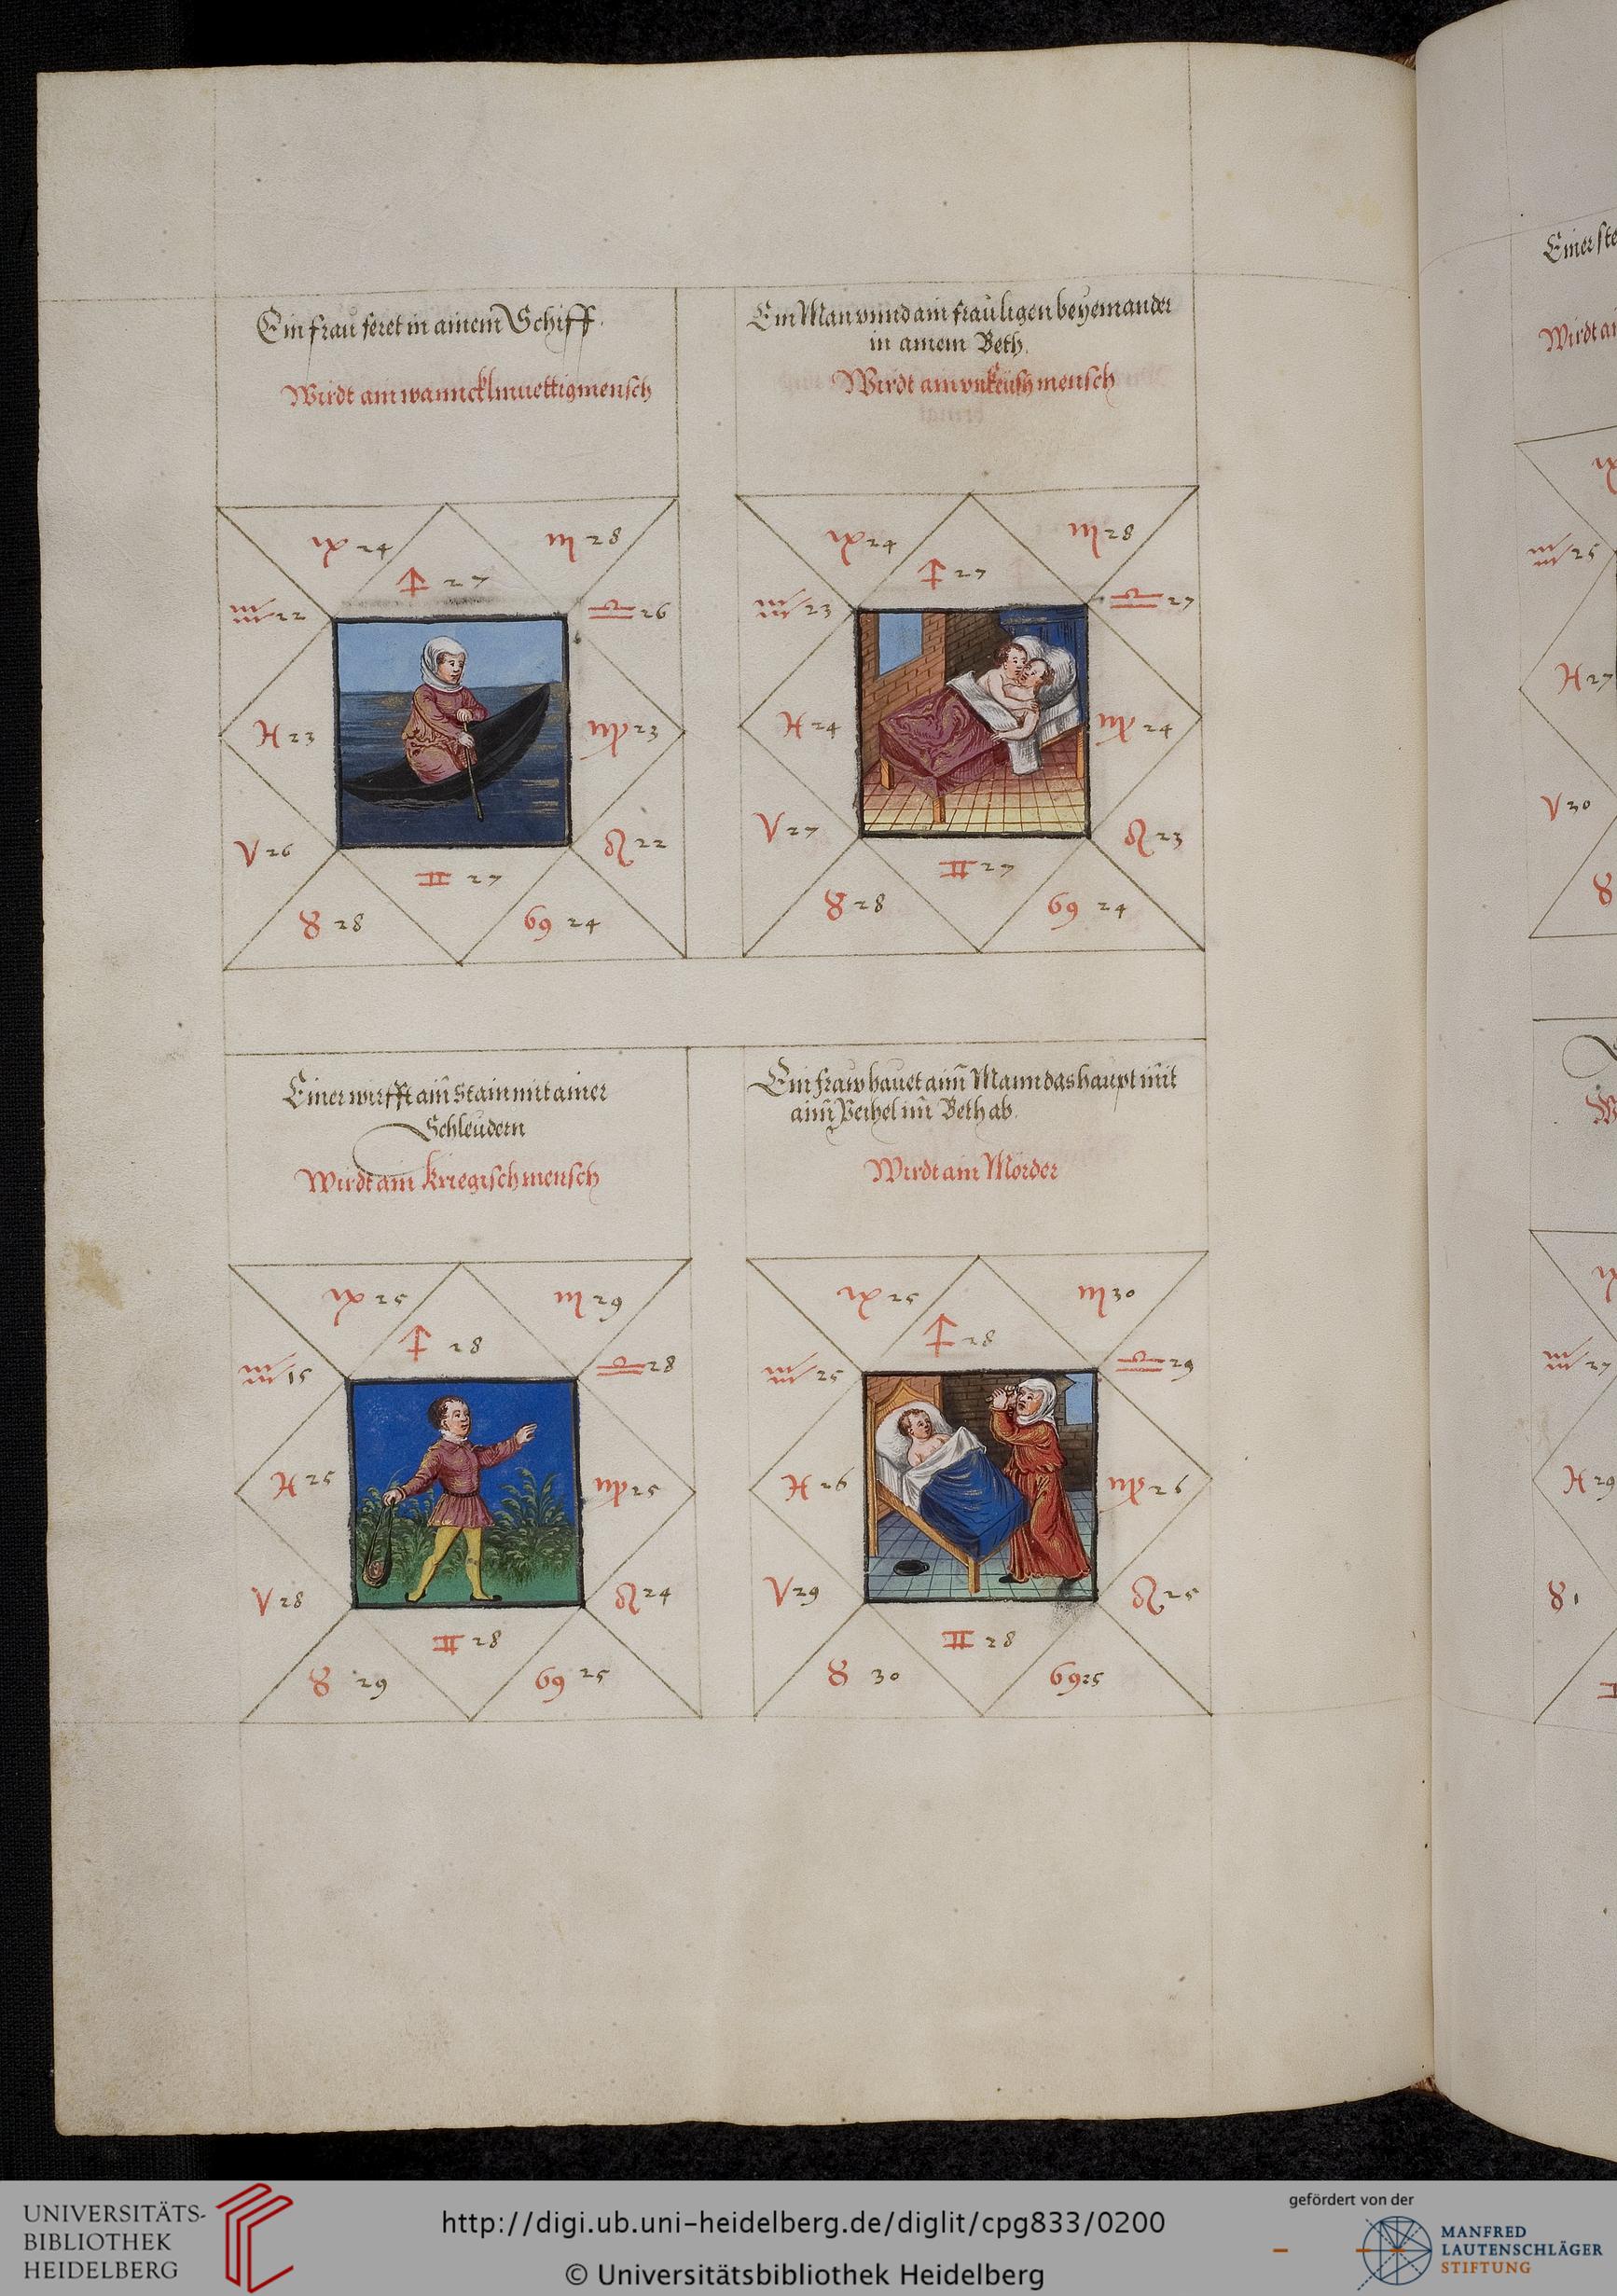 Ein frau feret in ainem Schiff.
Wirdt ain wannckhmuettig mensch
♑ 24
♏ 28
♐ 27
♒ 22
♎ 26
♓ 23
♍ 23
♈ 26
♌ 22
♊ 27
♉ 28
♋ 24
Ein Man vnnd ain frau ligen bey einander
in ainem Beth.
Wirdt ain vnkeüsh mensch
♑ 24
♏ 28
♐ 27
♒ 23
♎ 27
♓ 24
♍ 24
♈ 27
♌ 23
♊ 27
♉ 28
♋ 24
Einer wirfft aim̃ Stain mit ainer
Schleudern
Wirdt ain kriegisch mensch
♑ 25
♏ 29
♐ 28
♒ 15
♎ 28
♓ 25
♍ 25
♈ 28
♌ 24
♊ 28
♉ 29
♋ 25
Ein fraw hauet aim̃ Mann das haupt mit
aim̃ Peihel im̃ Beth ab.
Wirdt ain Mörder
♑ 25
♏ 30
♐ 28
♒ 25
♎ 29
♓ 26
♍ 26
♈ 29
♌ 25
♊ 28
♉ 30
♋ 25
Einer
Wirdt
♒ 25
♓ 27
♈ 30
♉
♒ 27
♓ 29
♉ 1
UNIVERSITÄTS-
BIBLIOTHEK
HEIDELBERG
http://digi.ub.uni-heidelberg.de/diglit/cpg833/0200
© Universitätsbibliothek Heidelberg
gefördert von der
MANFRED
LAUTENSCHLÄGER
STIFTUNG